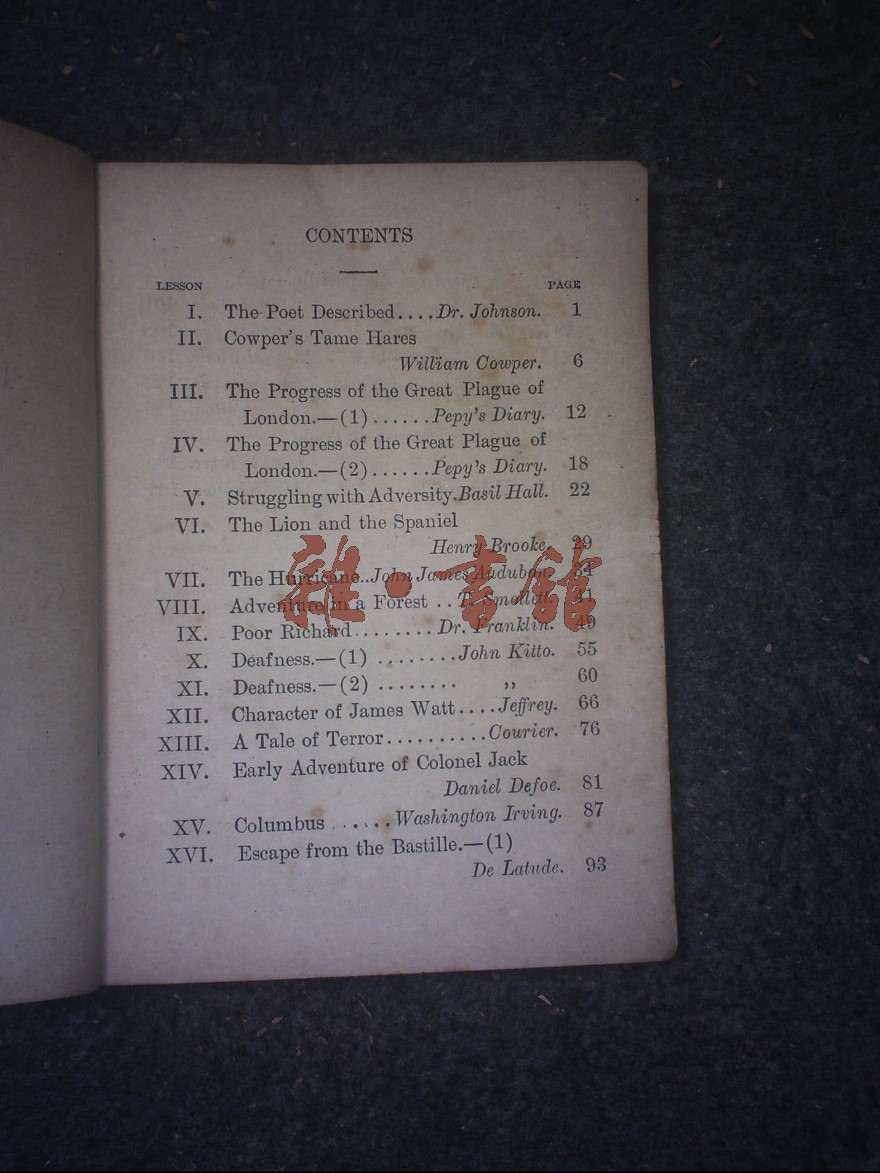 CONTENTS
LESSON PAGE
I. The Poet Described....Dr. Johnson. 1
II. Cowper's Tame Hares
William Cowper. 6
III. The Progress of the Great Plague of
London.—(1)......Pepy's Diary. 12
IV. The Progress of the Great Plague of
London.—(2)......Pepy's Diary. 18
V. Struggling with Adversity.Basil Hall. 22
VI. The Lion and the Spaniel
Henry Brooke. 29
VII. The Hurricane..John James Audubon. 34
VIII. Adventure in a Forest ..T. Smollett. 41
IX. Poor Richard........Dr. Franklin. 49
X. Deafness.—(1) ........John Kitto. 55
XI. Deafness.—(2) ........ ,, 60
XII. Character of James Watt....Jeffrey. 66
XIII. A Tale of Terror..........Courier. 76
XIV. Early Adventure of Colonel Jack
Daniel Defoe. 81
XV. Columbus ......Washington Irving. 87
XVI. Escape from the Bastille.—(1)
De Latude. 93
雜·書館